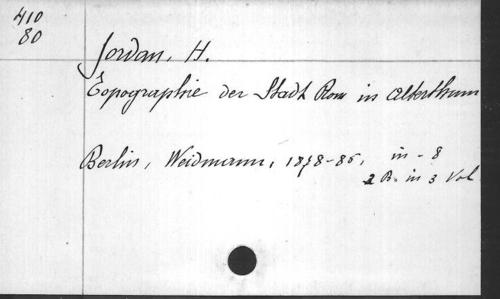 410
80
Jordan, H.
Topographie der Stadt Rom in Alterthum
Berlin, Weidmann, 1878-86, in-8
2 B. in 3 Vol.